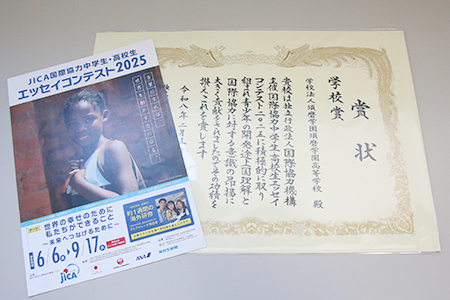 JICA国際協力中学生・高校生
エッセイコンテスト2025
世界の幸せのために
私たちができること
～未来へつなげるために～
6/6 9/17
約1週間の
海外研修
JICA
ANA
賞状
学校賞
学校法人須磨学園須磨学園高等学校 殿
貴校は独立行政法人国際協力機構
主催国際協力中学生・高校生エッセイ
コンテスト二〇二五に積極的に取り
組まれ青少年の開発途上国理解と
国際協力に対する意識の昂揚に
大きく貢献をされましたのでその功績を
讃えこれを賞します
令和八年二月